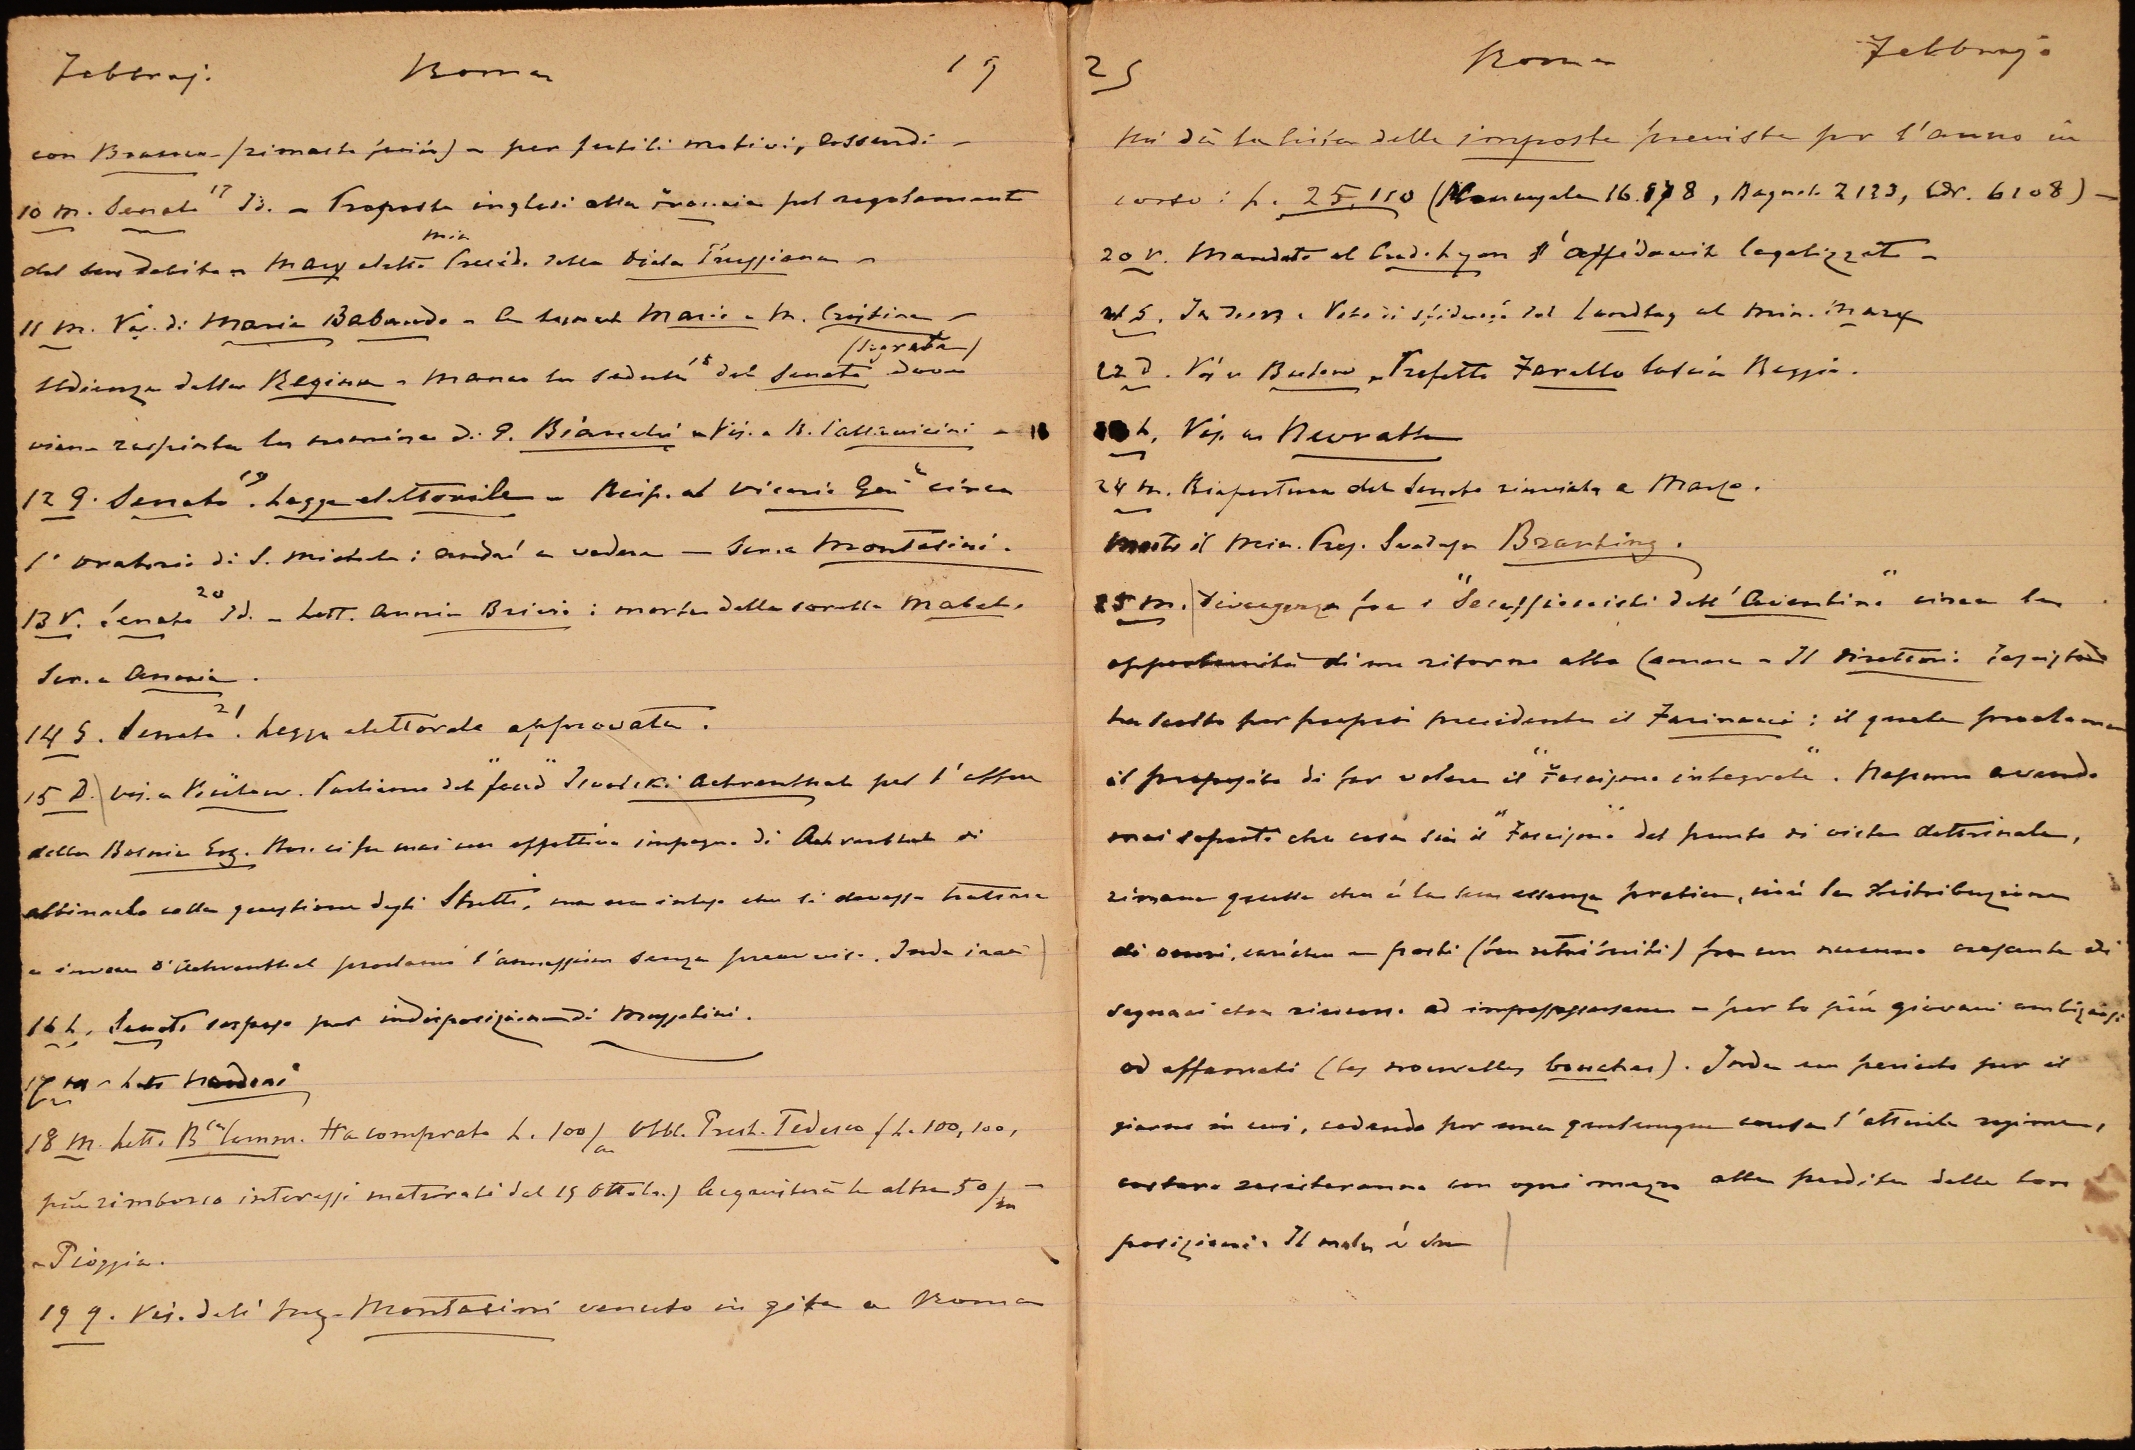 Febbraj. Roma 19
con Brance (rimasta fuori) – per futili motivi, assurdi –
10 m. Senato 17 Id. – Proposta inglese alla Francia pel regolamento
del suo debito – Marx eletto min Presid. della Dieta Prussiana –
11 m. Vis. di Maria Babando – Mario – M. Cristina –
Udienza della Regina – Manco la seduta 18 del Senato (segreta) dove
viene respinta la nomina di G. Bianchi – Vis. a B. Pallavicini –
12 g. Senato 19. Legge elettorale – Risp. al Vicario Gen.e circa
l'oratorio di S. Michele: andrò a vedere – Ser. a Montasini.
13 V. Senato 20 Id. – Lett. Annie : morte della sorella Mabel.
Ser. a Annnia.
14 S. Senato 21. Legge elettorale approvata.
15 D. Vis. a Bülow. Parliamo del "feud" Isvolski Aehrenthal pel l'affare
della Bosnia Erz. Non ci fu mai un effettivo impegno di Aehrenthal di
abbinarlo colla questione degli Stretti, ma era inteso che si dovesse trattare
e invece d'Aehrenthal proclamò l'annessione senza preavviso. Inde irae
16 L. Senato sospeso per indisposizione di Mussolini.
17 m – Lett. Nardoni
18 m. Lett. B.ca Comm. Ha comprato L. 100/m Obbl. Prest. Tedesco (L. 100,100,
più rimborso interessi maturati dal 15 Ottobre.) Acquisterà le altre 50/m –
– Pioggia.
19 g. Vis. dell' Ing. Montasini venuto in gita a Roma
25 Roma Febbrajo
Mi dà la lista delle imposte previste per l'anno in
corso: L. 25.110 (16.878, Bagnolo 2123, 6108) –
20 V. Mandato al Cred. Lyon l'affidavit legalizzato –
21 S. Voto di sfiducia del Landtag al min. Marx
22 D. Vis. a Bulow – Prefetto Farello lascia Reggio.
L. Vis. a Neurath
24 m. Riapertura del Senato rinviata a Marzo.
Morto il Min. Pres. Svedese Branting.
25 m. Divergenza fra i "Secessionisti dell'Aventino" circa la
opportunità di un ritorno alla Camera – Il Direttorio Fascista
ha scelto per proprio presidente il Farinacci: il quale proclama
il proposito di far valere il "Fascismo integrale". Nessuno avendo
mai saputo che cosa sia il "Fascismo" dal punto di vista dottrinale,
rimane quella che è la sua essenza pratica, cioè la distribuzione
di onori, cariche e posti (ben retribuiti) fra un numero crescente di
seguaci che riescono ad impossessarsene – per lo più giovani ambiziosi
od affamati (les nouvelles bouches). Inde un pericolo per il
giorno in cui, cadendo per una qualunque causa l'attuale regime,
costoro resisteranno con ogni mezzo alla perdita delle loro
posizioni. Il male è che